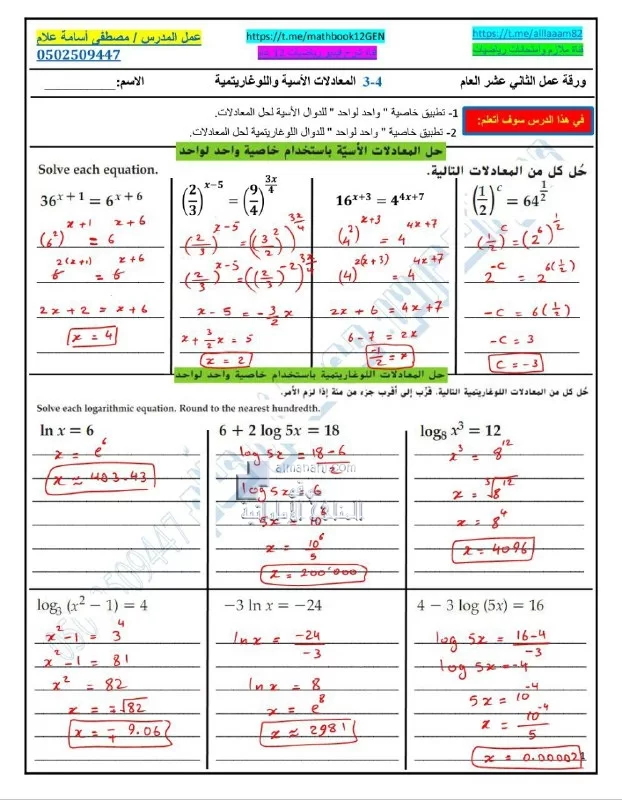 عمل المدرس / مصطفى أسامة علام
0502509447
https://t.me/mathbook12GEN
https://t.me/alllaaam82
قناة ملازم وامتحانات رياضيات
ورقة عمل الثاني عشر العام
3-4 المعادلات الأسية واللوغاريتمية
الاسم:
في هذا الدرس سوف أتعلم:
1- تطبيق خاصية " واحد لواحد " للدوال الأسية لحل المعادلات.
2- تطبيق خاصية " واحد لواحد " للدوال اللوغاريتمية لحل المعادلات.
حل المعادلات الأسيّة باستخدام خاصية واحد لواحد
Solve each equation.
حُل كل من المعادلات التالية.
36^{x+1} = 6^{x+6}
(6^2)^{x+1} = 6^{x+6}
6^{2(x+1)} = 6^{x+6}
2x + 2 = x + 6
x = 4
(2/3)^{x-5} = (9/4)^{3x/4}
(2/3)^{x-5} = ((3/2)^2)^{3x/4}
(2/3)^{x-5} = ((2/3)^{-2})^{3x/4}
x - 5 = -3/2 x
x + 3/2 x = 5
x = 2
16^{x+3} = 4^{4x+7}
(4^2)^{x+3} = 4^{4x+7}
(4)^{2(x+3)} = 4^{4x+7}
2x + 6 = 4x + 7
6 - 7 = 2x
-1/2 = x
(1/2)^c = 64^{1/2}
(1/2)^c = (2^6)^{1/2}
2^{-c} = 2^{6(1/2)}
-c = 6(1/2)
-c = 3
c = -3
حل المعادلات اللوغاريتمية باستخدام خاصية واحد لواحد
حُل كل من المعادلات اللوغاريتمية التالية. قرِّب إلى أقرب جزء من مئة إذا لزم الأمر.
Solve each logarithmic equation. Round to the nearest hundredth.
ln x = 6
x = e^6
x ≈ 403.43
6 + 2 log 5x = 18
log 5x = (18-6)/2
log 5x = 6
x = 10^6/5
x = 200'000
log₈ x³ = 12
x^3 = 8^{12}
x = ∛8^{12}
x = 8^4
x = 4096
log₃ (x² − 1) = 4
x^2 - 1 = 3^4
x^2 - 1 = 81
x^2 = 82
x = ∓√82
x = ∓ 9.06
−3 ln x = −24
ln x = -24/-3
ln x = 8
x = e^8
x ≈ 2981
4 − 3 log (5x) = 16
log 5x = 16-4/-3
log 5x = -4
5x = 10^{-4}
x = 10^{-4}/5
almanahj.com
050 2509447